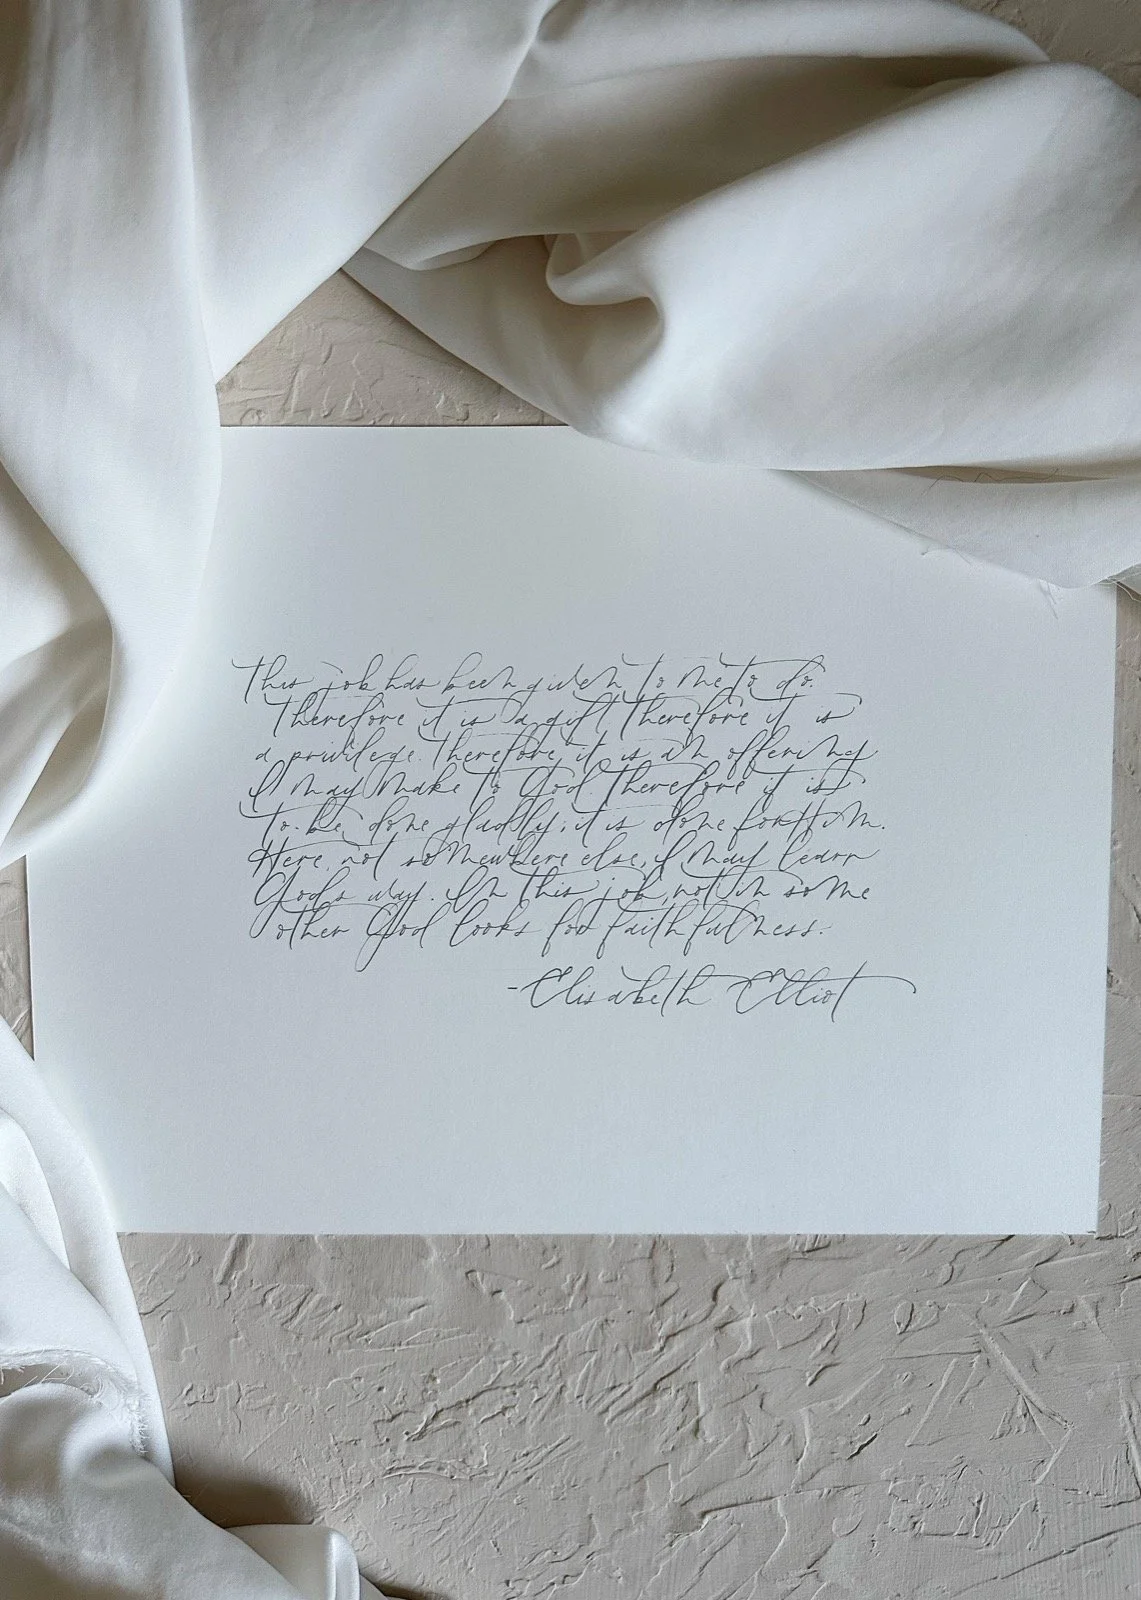 This job has been given to me to do.
Therefore it is a gift. Therefore it is
a privilege. Therefore it is an offering
I may make to God. Therefore it is
to be done gladly, it is done for Him.
Here, not somewhere else, I may learn
God's way. In this job, not in some
other God looks for faithfulness.
-Elisabeth Elliot